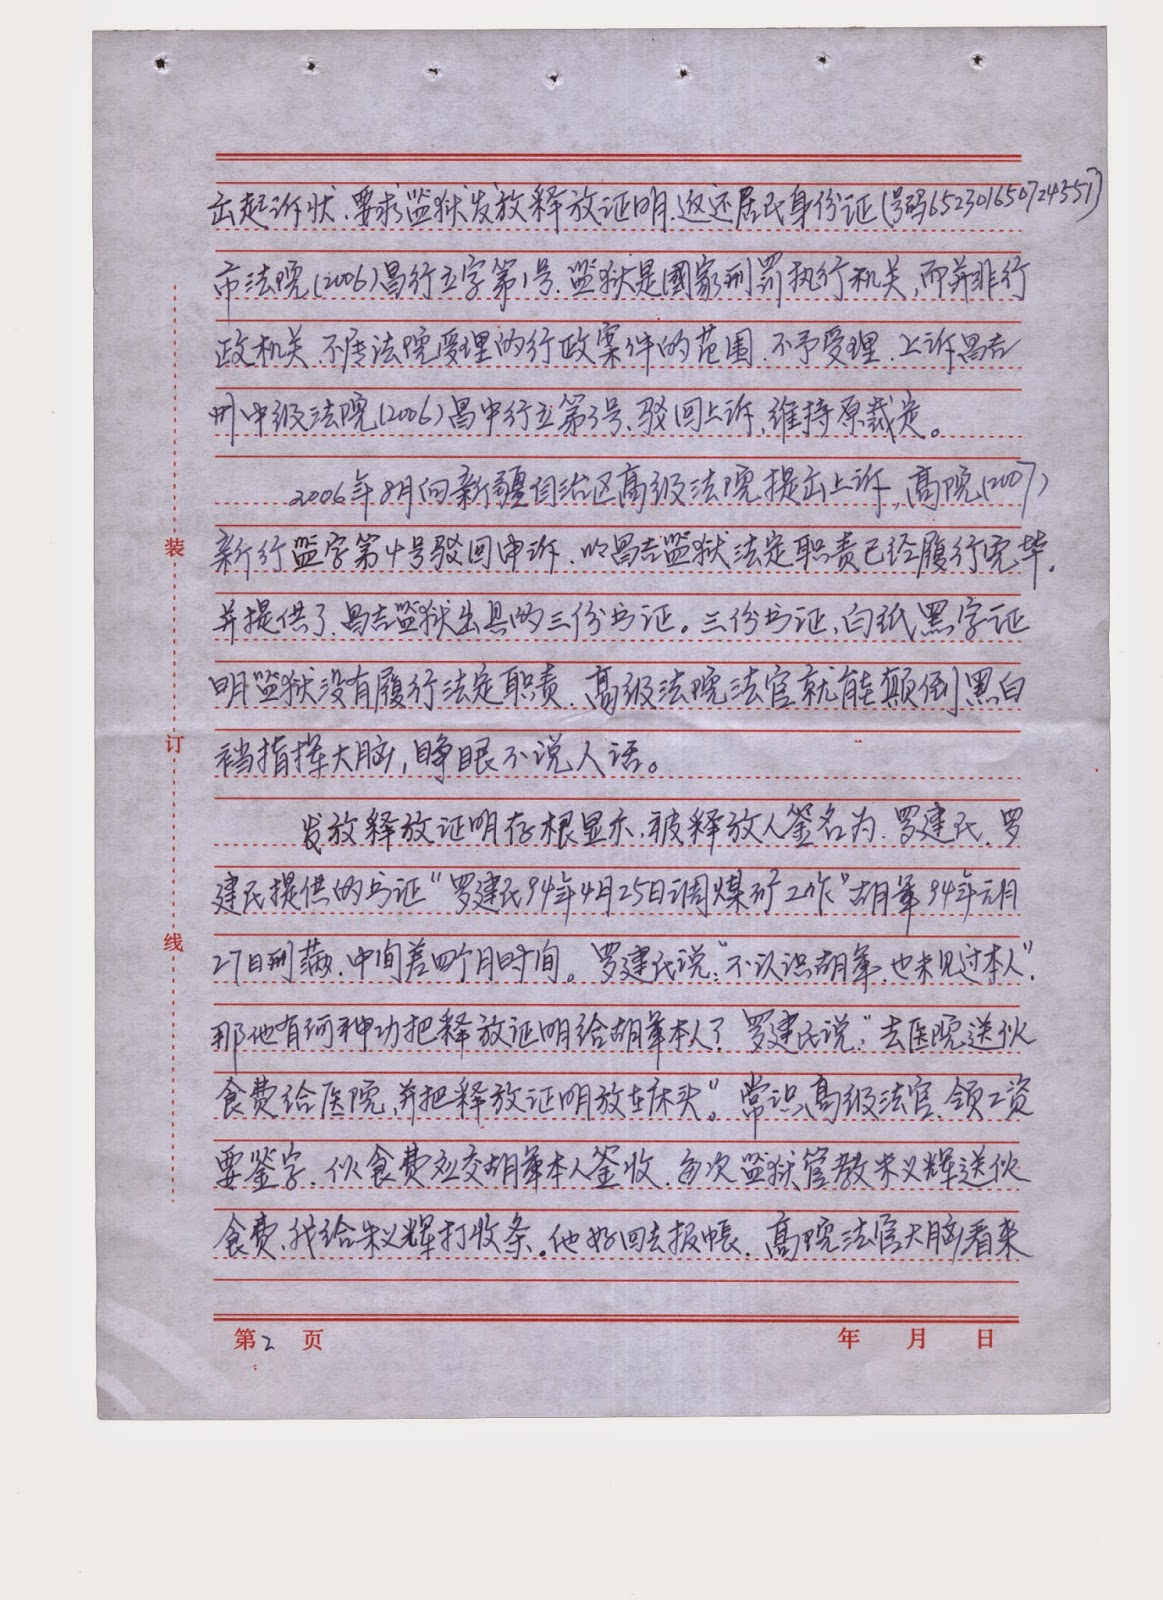 出起诉状、要求监狱发放释放证明、返还居民身份证(号码652301650724351)
市法院(2006)昌行立字第1号、监狱是國家刑罚执行机关,而并非行
政机关、不属法院受理的行政案件的范围、不予受理、上诉昌吉
州中级法院(2006)昌中行立第3号、驳回上诉,维持原裁定。
2006年8月向新疆自治区高级法院提出上诉,高院(2007)
新行监字第4号驳回申诉、以昌吉监狱法定职责已经履行完毕.
装
并提供了、昌吉监狱出具的三份书证。三份书证、白纸黑字证
明监狱没有履行法定职责、高级法院法官就能颠倒黑白
订
裆指挥大脑,睁眼不说人话。
发放释放证明存根显示、被释放人签名为、罗建民、罗
建民提供的书证“罗建民94年4月25日调煤矿工作”胡军94年元月
线
27日刑满、中间差四个月时间。罗建民说:“不认识胡军、也未见过本人”.
那他有何神功把释放证明给胡军本人? 罗建民说:“去医院送伙
食费给医院,并把释放证明放在床头”。常识、高级法官、领工资
要鉴字、伙食费应交胡军本人签收、每次监狱管教朱义辉送伙
食费、我给朱义辉打收条。他好回去报帐、高院法官大脑看来
第2页 年 月 日